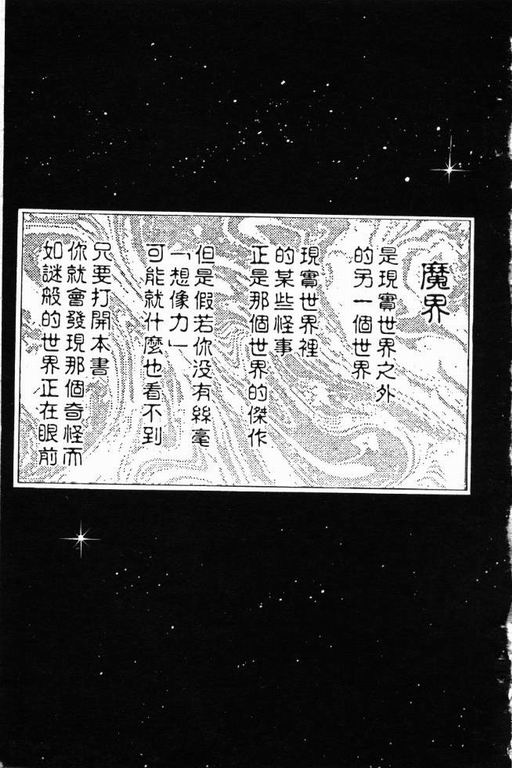 魔界
是現實世界之外
的另一個世界
現實世界裡
的某些怪事
正是那個世界的傑作
但是假若你没有絲毫
「想像力」
可能就什麼也看不到
只要打開本書
你就會發現那個奇怪而
如謎般的世界正在眼前